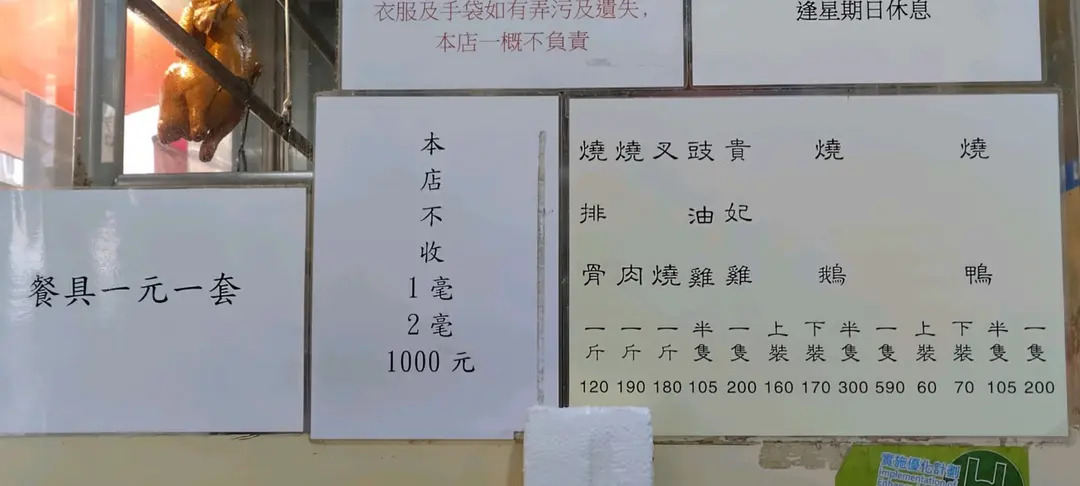 衣服及手袋如有弄污及遺失,
本店一概不負責
逢星期日休息
餐具一元一套
本店不收
1毫
2毫
1000元
燒排骨 一斤 120
燒肉 一斤 190
叉燒 一斤 180
豉油雞 半隻 105
貴妃雞 一隻 200
燒鵝 上裝 160 下裝 170 半隻 300 一隻 590
燒鴨 上裝 60 下裝 70 半隻 105 一隻 200
實施優化計劃
Implementation of